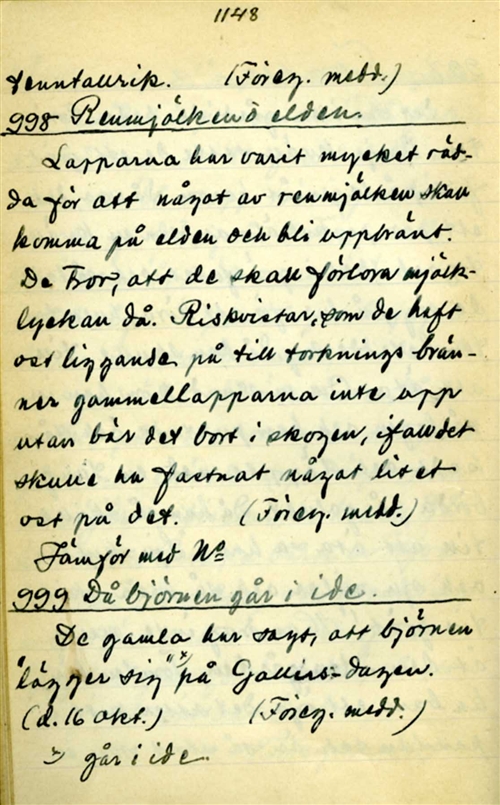 1148
tenntallrik. (Föreg. medd.)
998 Renmjölken o elden.
Lapparna har varit mycket räd-
da för att något av renmjölken skall
komma på elden och bli uppbränt.
De tror, att de skall förlora mjölk-
lyckan då. Riskvistar, som de haft
ost liggande på till torknings brän-
ner gammellapparna inte upp
utan bär det bort i skogen, ifall det
skulle ha fastnat något litet
ost på det. (Föreg. medd.)
Jämför med No
999 Då björnen går i ide.
De gamla har sagt, att björnen
"lägger sig" x) på Gallus-dagen.
(d. 16 okt.) (Föreg. medd.)
x) går i ide.